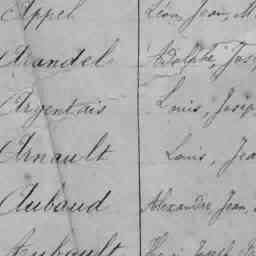 Appel Léon, Jean, M
Arandel Adolphe, Jos
Argentais Louis, Josep
Arnault Louis, Jea
Aubaud Alexandre Jean,
Aubault